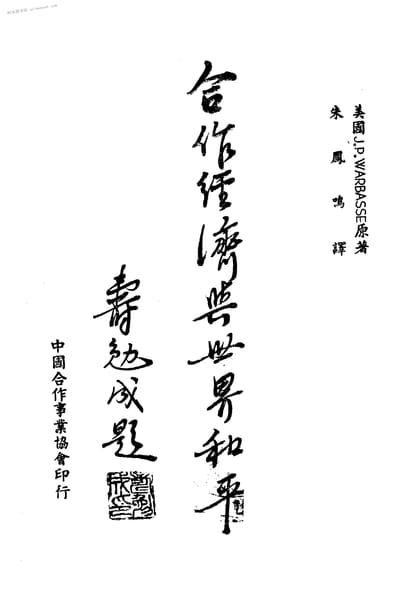 美國J.P.WARBASSE原著
朱鳳鳴譯
合作經濟與世界和平
壽勉成題
中國合作事業協會印行